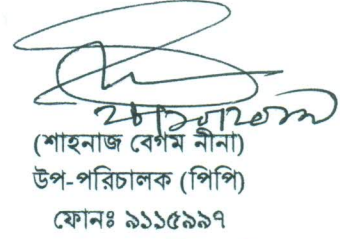 (শাহনাজ বেগম নীনা)
উপ-পরিচালক (পিপি)
ফোনঃ ৯১১৫৯৯৭